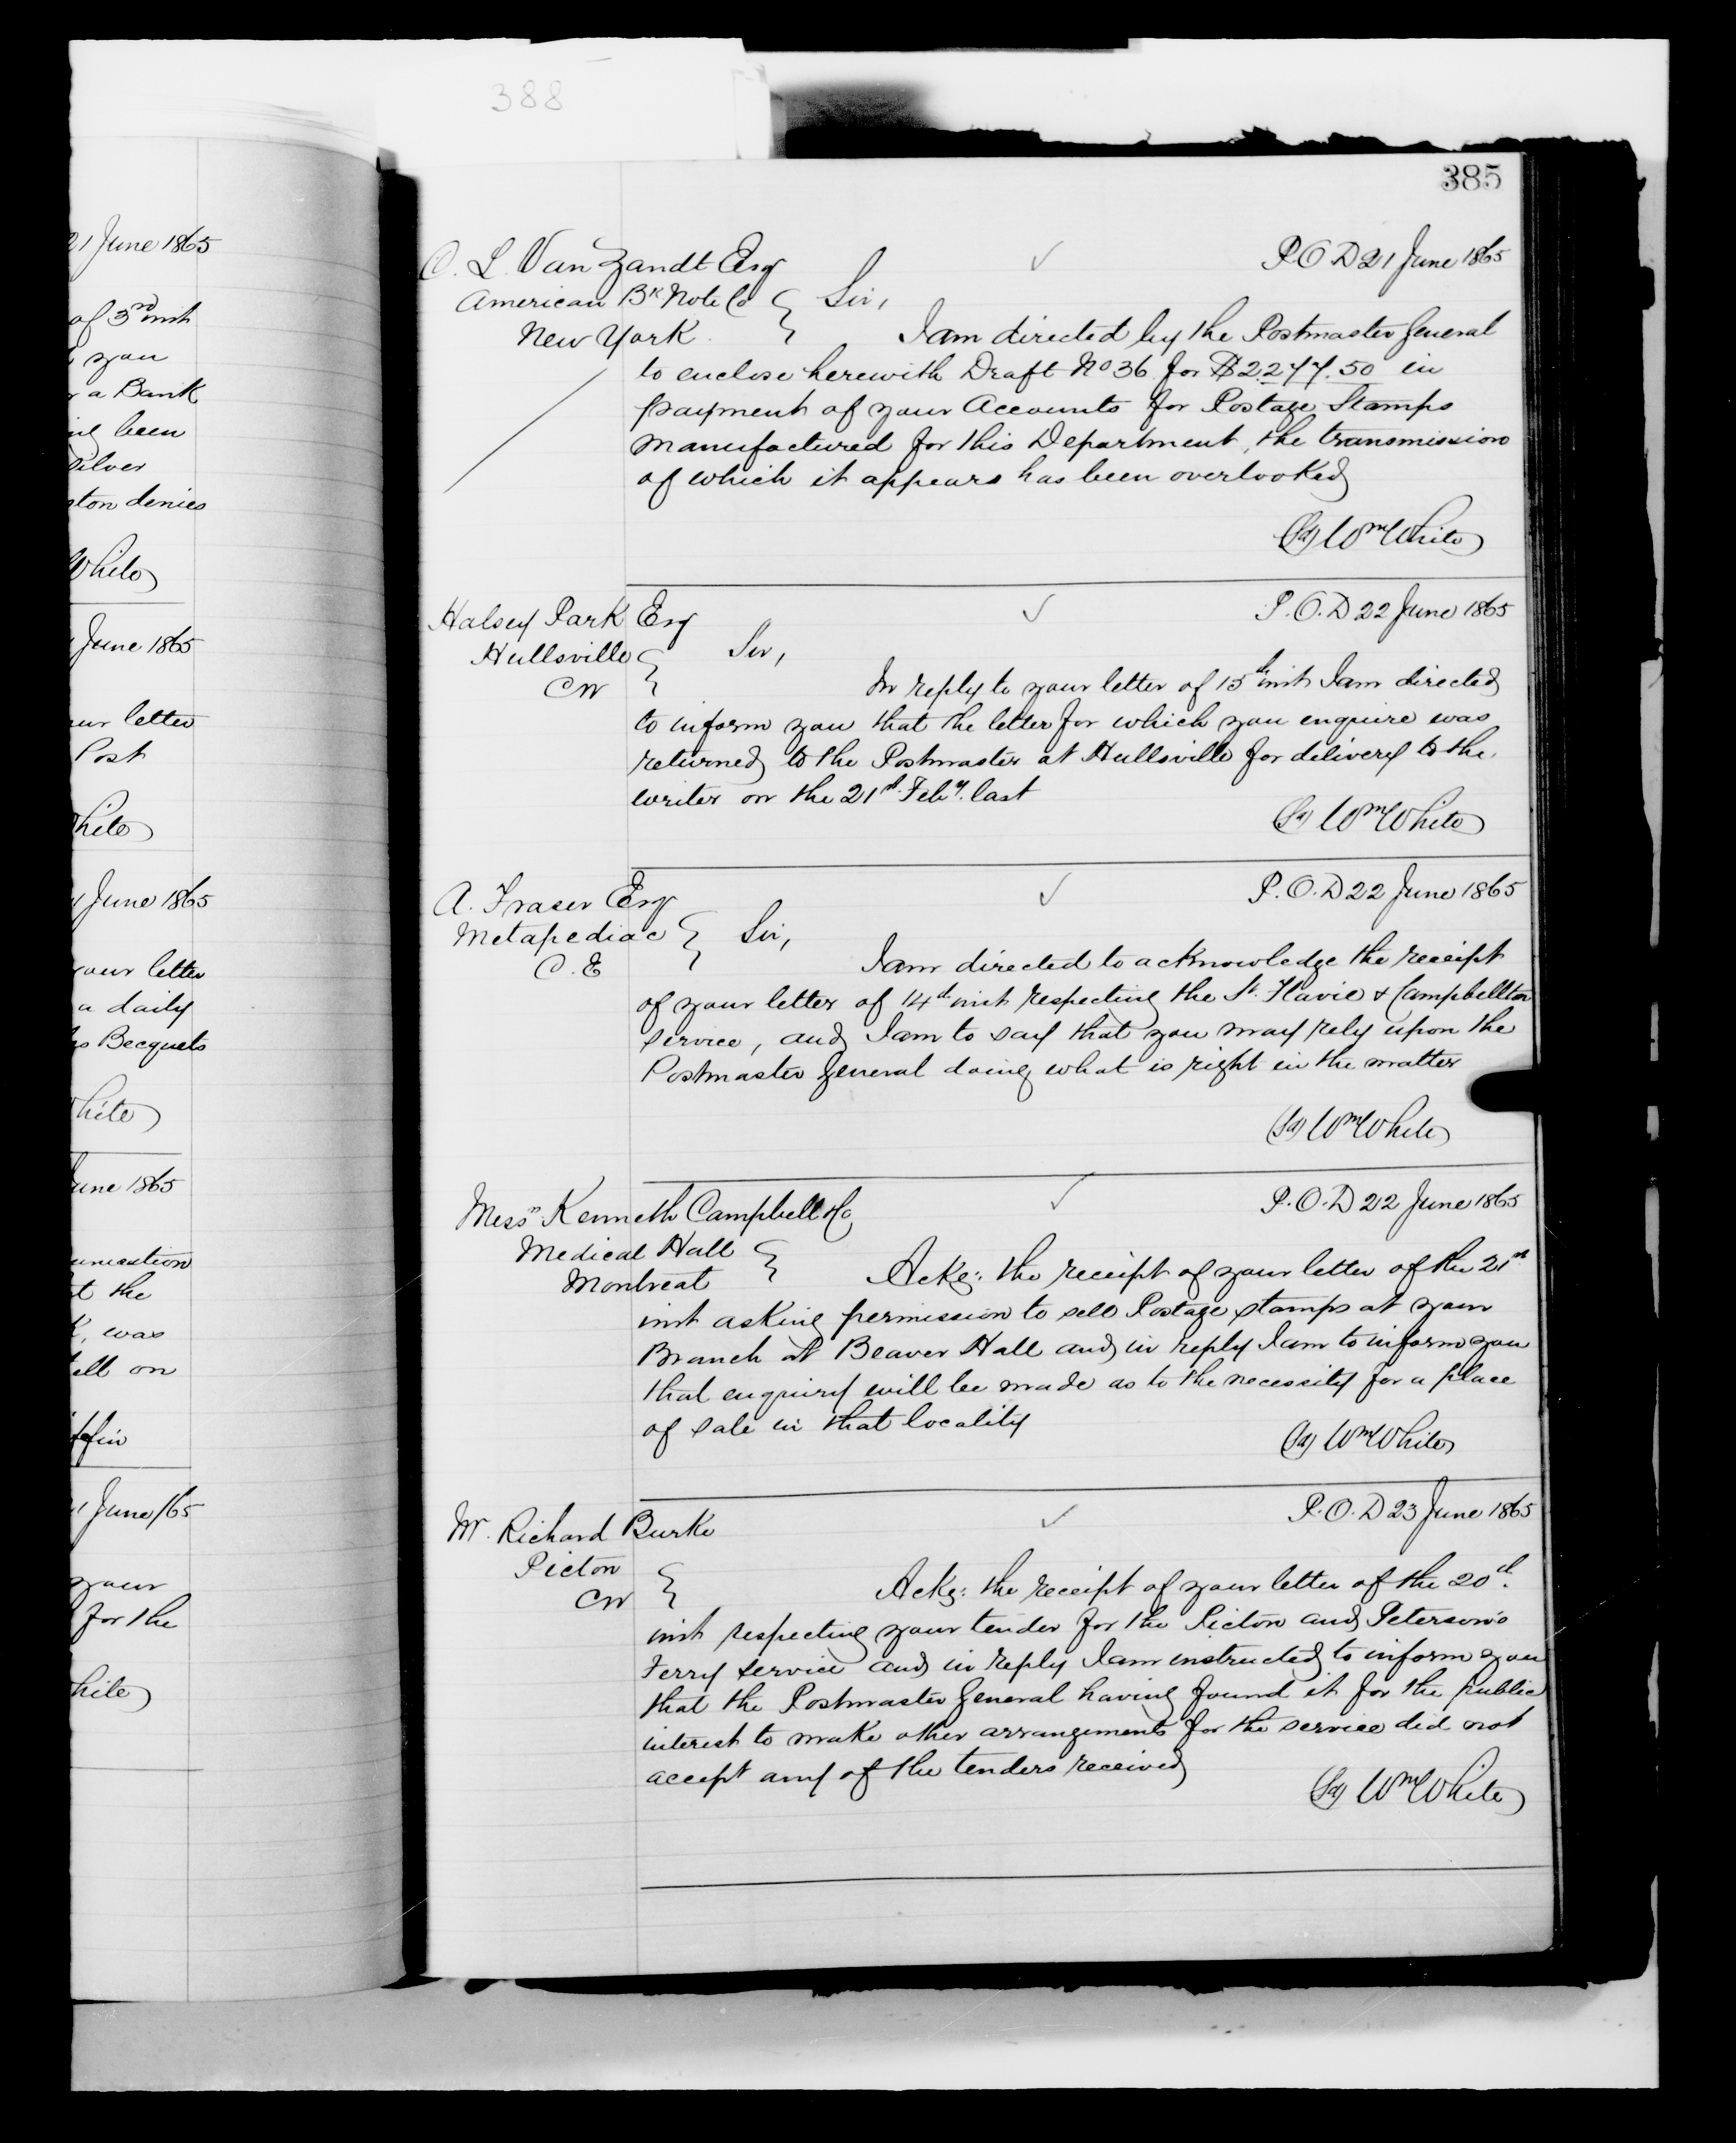 388
385
21 June 1865
of 3rd inst
you
a Bank
been
silver
denies
White
June 1865
letter
Post
White
June 1865
your letter
a daily
Becquets
White
June 1865
t the
was
on
June /65
your
for the
White
C. L. Van Zandt Esq
American Bk Note Co
New York
P.O.D 21 June 1865
Sir,
I am directed by the Postmaster General
to enclose herewith Draft No 36 for $2277.50 in
payment of your Accounts for Postage Stamps
manufactured for this Department, the transmission
of which it appears has been overlooked
(Sd) Wm White
Halsey Park Esq
Hullsville
CW
P.O.D 22 June 1865
Sir,
In reply to your letter of 15th inst I am directed
to inform you that the letter for which you enquire was
returned to the Postmaster at Hullsville for delivery to the
writer on the 21st Feby. last
(Sd) Wm White
A. Fraser Esq
Metapediac
C.E
P.O.D 22 June 1865
Sir,
I am directed to acknowledge the receipt
of your letter of 14th inst respecting the St. Flavie & Campbellton
service, and I am to say that you may rely upon the
Postmaster General doing what is right in the matter
(Sd) Wm White
Messrs Kenneth Campbell & Co
Medical Hall
Montreal
P.O.D 22 June 1865
Ackg: the receipt of your letter of the 21st
inst asking permission to sell Postage stamps at your
Branch at Beaver Hall and in reply I am to inform you
that enquiry will be made as to the necessity for a place
of sale in that locality
(Sd) Wm White
Mr. Richard Burke
Picton
CW
P.O.D 23 June 1865
Ackg: the receipt of your letter of the 20th.
inst respecting your tender for the Picton and Peterson's
Ferry service and in reply I am instructed to inform you
that the Postmaster General having found it for the public
interest to make other arrangements for the service did not
accept any of the tenders received
(Sd) Wm White